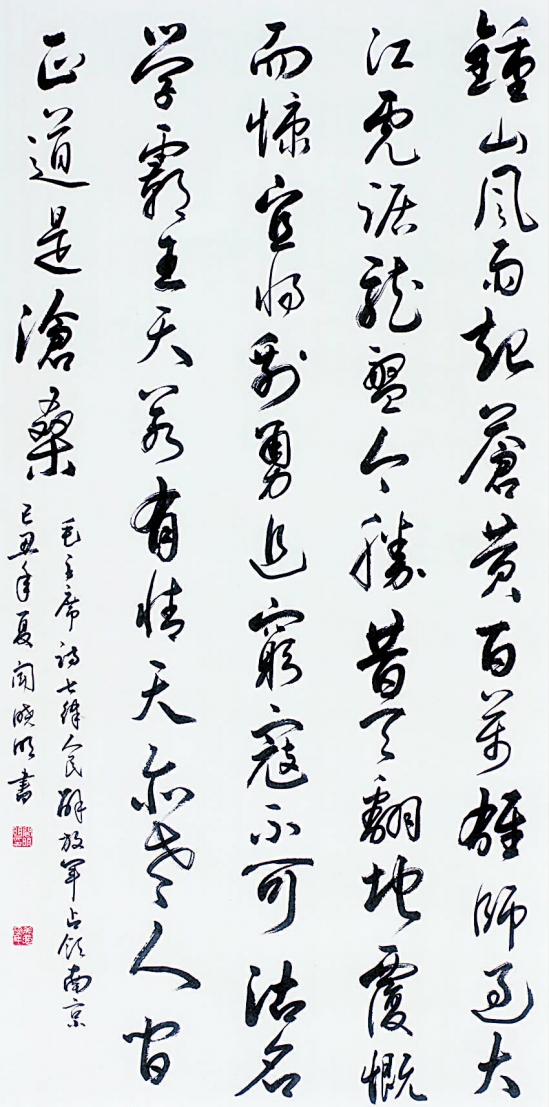 鍾山風雨起蒼黄百萬雄師過大
江虎踞龍盤今勝昔天翻地覆慨
而慷宜將剩勇追窮寇不可沽名
学霸王天若有情天亦老人間
正道是滄桑
毛主席詩七律人民解放軍占領南京
己丑年夏聞曉明書